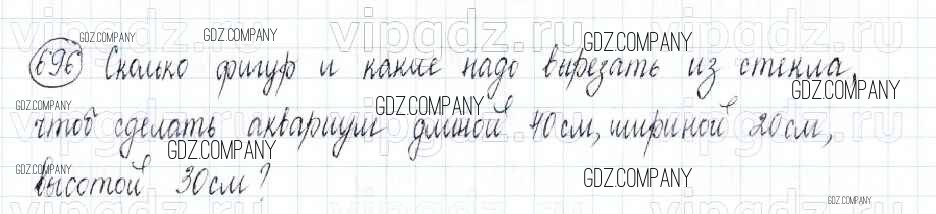 696 Сколько фигур и какие надо вырезать из стекла,
чтоб сделать аквариум длиной 40 см, шириной 20 см,
высотой 30 см?
GDZ.COMPANY
GDZ.COMPANY
GDZ.COMPANY
GDZ.COMPANY
GDZ.COMPANY
GDZ.COMPANY
GDZ.COMPANY
GDZ.COMPANY
GDZ.COMPANY
GDZ.COMPANY
vipgdz.com
vipgdz.com
vipgdz.com